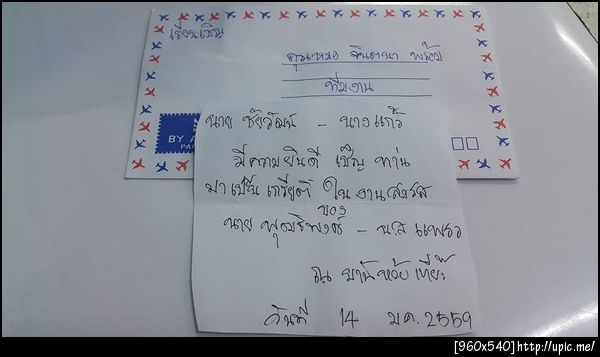 เรียนเชิญ
คุณหมอ จินตนา พร้อม
ทีมงาน
BY A
PA
นาย ชัยวัฒน์ - นางแก้ว
มีความยินดี เชิญ ท่าน
มาเป็น เกรียติ ในงานสมรส
ของ
นาย พุฒธิพงศ์ - น.ส แพรว
ณ บ้านห้วย
วันที่ 14 มค. 2559
[960x540]http://upic.me/